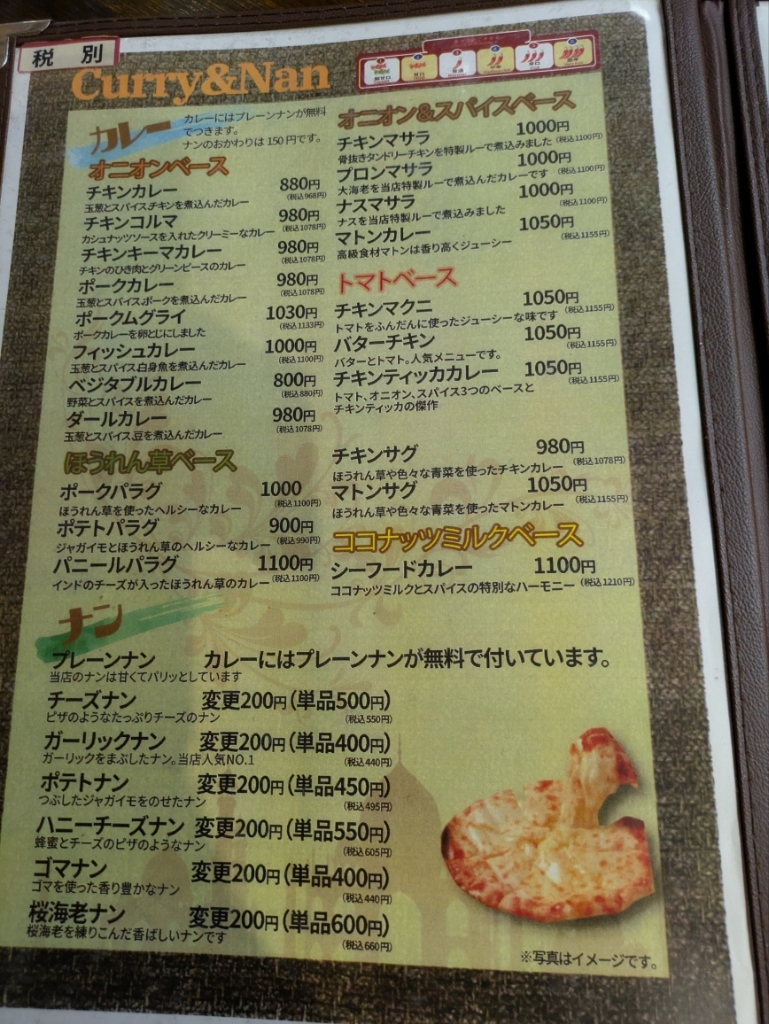 税別
Curry&Nan
カレー
カレーにはプレーンナンが無料
でつきます。
ナンのおかわりは150円です。
オニオンベース
チキンカレー 880円
玉葱とスパイス,チキンを煮込んだカレー (税込968円)
チキンコルマ 980円
カシュナッツソースを入れたクリーミーなカレー (税込1078円)
チキンキーマカレー 980円
チキンのひき肉とグリーンピースのカレー (税込1078円)
ポークカレー 980円
玉葱とスパイス,ポークを煮込んだカレー (税込1078円)
ポークムグライ 1030円
ポークカレーを卵とじにしました (税込1133円)
フィッシュカレー 1000円
玉葱とスパイス,白身魚を煮込んだカレー (税込1100円)
ベジタブルカレー 800円
野菜とスパイスを煮込んだカレー (税込880円)
ダールカレー 980円
玉葱とスパイス,豆を煮込んだカレー (税込1078円)
ほうれん草ベース
ポークパラグ 1000
ほうれん草を使ったヘルシーなカレー (税込1100円)
ポテトパラグ 900円
ジャガイモとほうれん草のヘルシーなカレー (税込990円)
パニールパラグ 1100円
インドのチーズが入ったほうれん草のカレー (税込1100円)
オニオン&スパイスベース
チキンマサラ 1000円
骨抜きタンドリーチキンを特製ルーで煮込みました (税込1100円)
プロンマサラ 1000円
大海老を当店特製ルーで煮込んだカレーです (税込1100円)
ナスマサラ 1000円
ナスを当店特製ルーで煮込みました (税込1100円)
マトンカレー 1050円
高級食材マトンは香り高くジューシー (税込1155円)
トマトベース
チキンマクニ 1050円
トマトをふんだんに使ったジューシーな味です (税込1155円)
バターチキン 1050円
バターとトマト。人気メニューです。 (税込1155円)
チキンティッカカレー 1050円
(税込1155円)
トマト、オニオン、スパイス3つのベースと
チキンティッカの傑作
チキンサグ 980円
ほうれん草や色々な青菜を使ったチキンカレー (税込1078円)
マトンサグ 1050円
ほうれん草や色々な青菜を使ったマトンカレー (税込1155円)
ココナッツミルクベース
シーフードカレー 1100円
ココナッツミルクとスパイスの特別なハーモニー (税込1210円)
ナン
プレーンナン カレーにはプレーンナンが無料で付いています。
当店のナンは甘くてパリッとしています
チーズナン 変更200円(単品500円)
ピザのようなたっぷりチーズのナン (税込550円)
ガーリックナン 変更200円(単品400円)
ガーリックをまぶしたナン。当店人気NO.1 (税込440円)
ポテトナン 変更200円(単品450円)
つぶしたジャガイモをのせたナン (税込495円)
ハニーチーズナン 変更200円(単品550円)
蜂蜜とチーズのピザのようなナン (税込605円)
ゴマナン 変更200円(単品400円)
ゴマを使った香り豊かなナン (税込440円)
桜海老ナン 変更200円(単品600円)
桜海老を練りこんだ香ばしいナンです (税込660円)
※写真はイメージです。